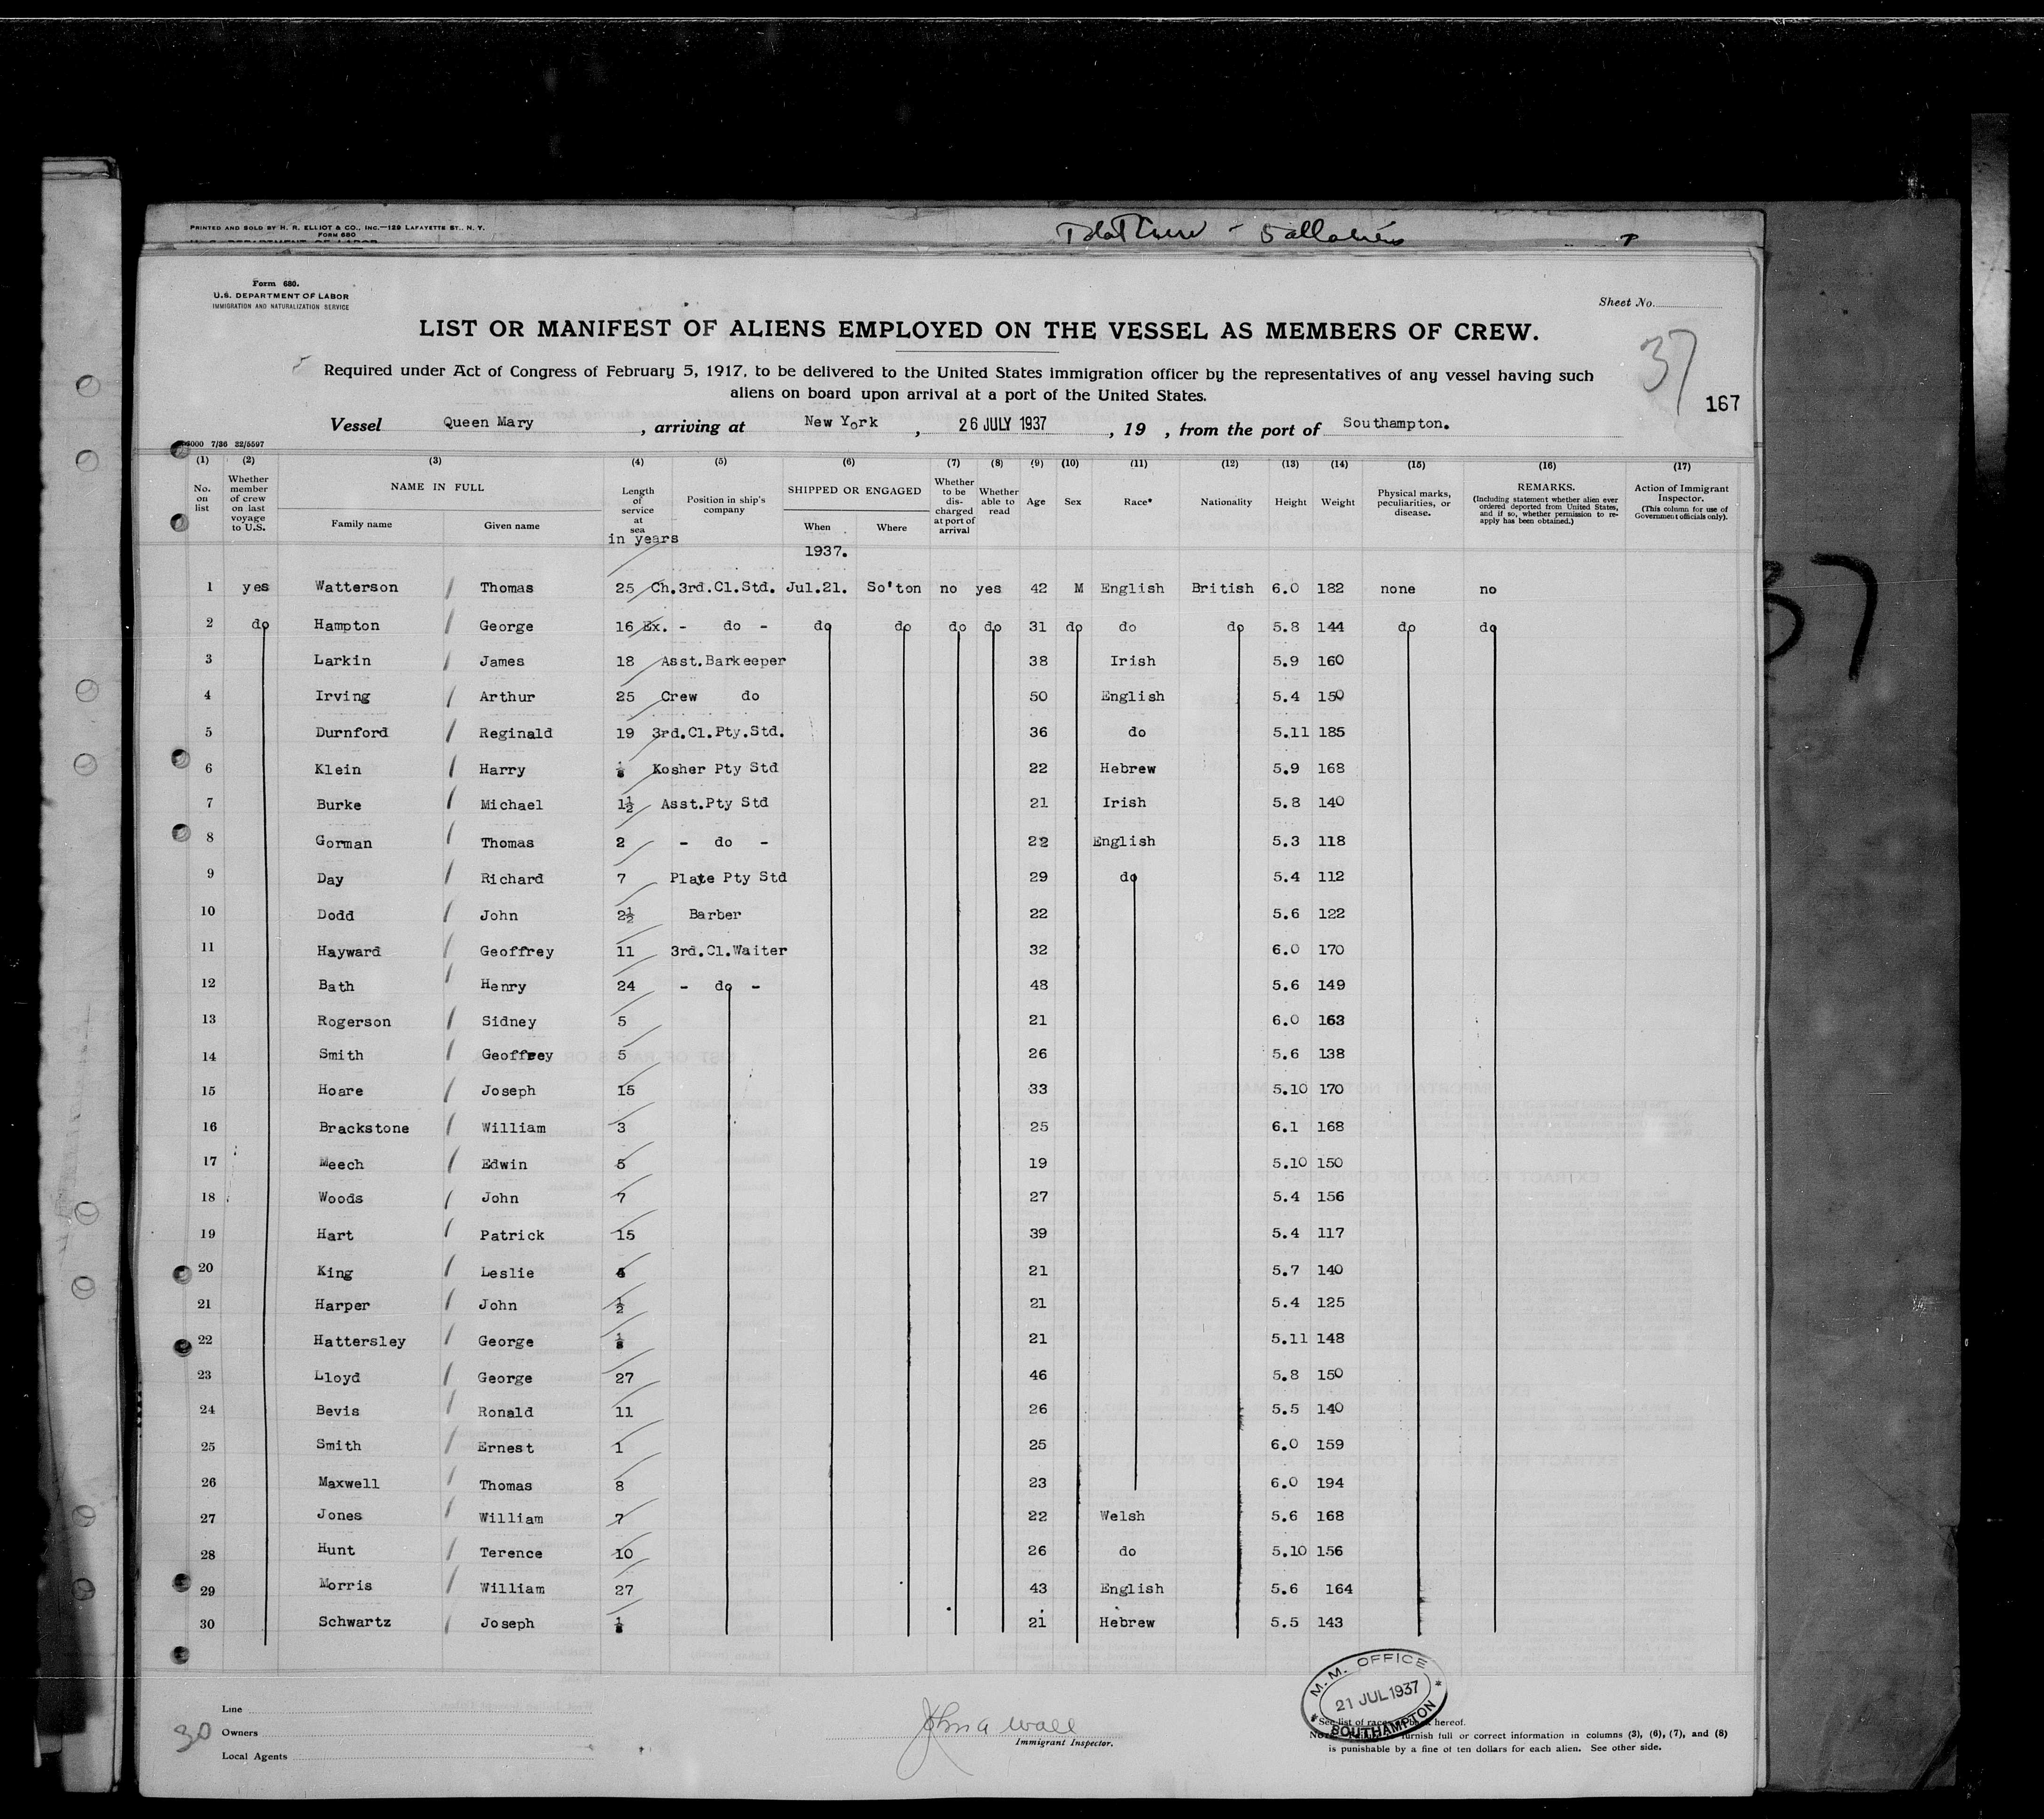 PRINTED AND SOLD BY H. R. ELLIOT & CO., INC.—129 LAFAYETTE ST., N. Y.
FORM 680
U. S. DEPARTMENT OF LABOR
Form 680.
U.S. DEPARTMENT OF LABOR
IMMIGRATION AND NATURALIZATION SERVICE
Sheet No.
LIST OR MANIFEST OF ALIENS EMPLOYED ON THE VESSEL AS MEMBERS OF CREW.
37
Required under Act of Congress of February 5, 1917, to be delivered to the United States immigration officer by the representatives of any vessel having such
aliens on board upon arrival at a port of the United States.
167
Vessel Queen Mary, arriving at New York, 26 JULY 1937, 19 , from the port of Southampton.
7/36 32/5597
(1) (2) (3) (4) (5) (6) (7) (8) (9) (10) (11) (12) (13) (14) (15) (16) (17)
No. on list | Whether member of crew on last voyage to U.S. | NAME IN FULL Family name Given name | Length of service at sea in years | Position in ship's company | SHIPPED OR ENGAGED When Where | Whether to be discharged at port of arrival | Whether able to read | Age | Sex | Race* | Nationality | Height | Weight | Physical marks, peculiarities, or disease. | REMARKS. (Including statement whether alien ever ordered deported from United States, and if so, whether permission to reapply has been obtained.) | Action of Immigrant Inspector. (This column for use of Government officials only).
1937.
1 yes Watterson Thomas 25 Ch.3rd.Cl.Std. Jul.21. So'ton no yes 42 M English British 6.0 182 none no
2 do Hampton George 16 Ex. - do - do do do do 31 do do do 5.8 144 do do
3 Larkin James 18 Asst.Barkeeper 38 Irish 5.9 160
4 Irving Arthur 25 Crew do 50 English 5.4 150
5 Durnford Reginald 19 3rd.Cl.Pty.Std. 36 do 5.11 185
6 Klein Harry Kosher Pty Std 22 Hebrew 5.9 168
7 Burke Michael 1½ Asst.Pty Std 21 Irish 5.8 140
8 Gorman Thomas 2 - do - 22 English 5.3 118
9 Day Richard 7 Plate Pty Std 29 do 5.4 112
10 Dodd John 2½ Barber 22 5.6 122
11 Hayward Geoffrey 11 3rd.Cl.Waiter 32 6.0 170
12 Bath Henry 24 - do - 48 5.6 149
13 Rogerson Sidney 5 21 6.0 163
14 Smith Geoffrey 5 26 5.6 138
15 Hoare Joseph 15 33 5.10 170
16 Brackstone William 3 25 6.1 168
17 Meech Edwin 5 19 5.10 150
18 Woods John 7 27 5.4 156
19 Hart Patrick 15 39 5.4 117
20 King Leslie 21 5.7 140
21 Harper John ½ 21 5.4 125
22 Hattersley George 21 5.11 148
23 Lloyd George 27 46 5.8 150
24 Bevis Ronald 11 26 5.5 140
25 Smith Ernest 1 25 6.0 159
26 Maxwell Thomas 8 23 6.0 194
27 Jones William 7 22 Welsh 5.6 168
28 Hunt Terence 10 26 do 5.10 156
29 Morris William 27 43 English 5.6 164
30 Schwartz Joseph 21 Hebrew 5.5 143
M. M. OFFICE
21 JUL 1937
SOUTHAMPTON
Line
30 Owners
Local Agents
John A Wall
Immigrant Inspector.
*See list of races hereof.
furnish full or correct information in columns (3), (6), (7), and (8)
is punishable by a fine of ten dollars for each alien. See other side.
37